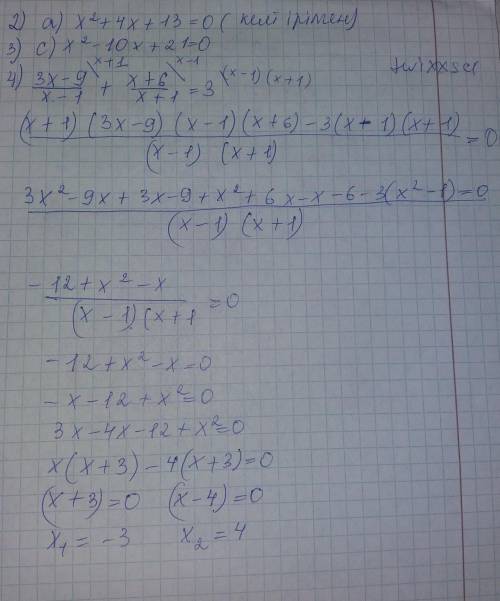 2) a) x² + 4x + 13 = 0 ( келтірілмен)
3) c) x² - 10x + 21 = 0
4) (3x - 9)/(x - 1) \x+1 + (x + 6)/(x + 1) \x-1 = 3 \(x-1)(x+1)
((x + 1) (3x - 9) (x - 1)(x + 6) - 3(x - 1)(x + 1))/((x - 1) (x + 1)) = 0
(3x² - 9x + 3x - 9 + x² + 6x - x - 6 - 3(x² - 1) = 0)/((x - 1) (x + 1))
(-12 + x² - x)/((x - 1)(x + 1) = 0
-12 + x² - x = 0
-x - 12 + x² = 0
3x - 4x - 12 + x² = 0
x(x + 3) - 4(x + 3) = 0
(x + 3) = 0 (x - 4) = 0
x₁ = -3 x₂ = 4